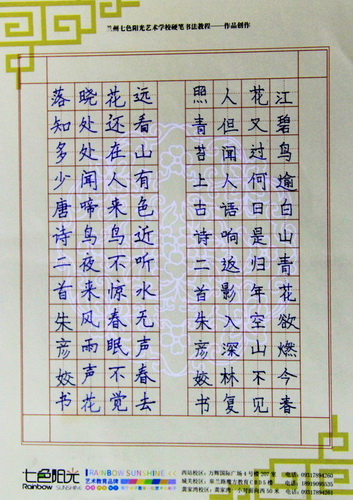 兰州七色阳光艺术学校硬笔书法教程——作品创作
江碧鸟逾白山青花欲燃今春
花又过何日是归年空山不见
人但闻人语响返影入深林复
照青苔上古诗二首朱彦姣书
远看山有色近听水无声春去
花还在人来鸟不惊春眠不觉
晓处处闻啼鸟夜来风雨声花
落知多少唐诗二首朱彦姣书
七色阳光
Rainbow SUNSHINE
RAINBOW SUNSHINE
艺术教育品牌
西站校区：万辉国际广场4号楼207室 电话：09317894260
城关校区： 电话：
黄家湾校区： 电话：